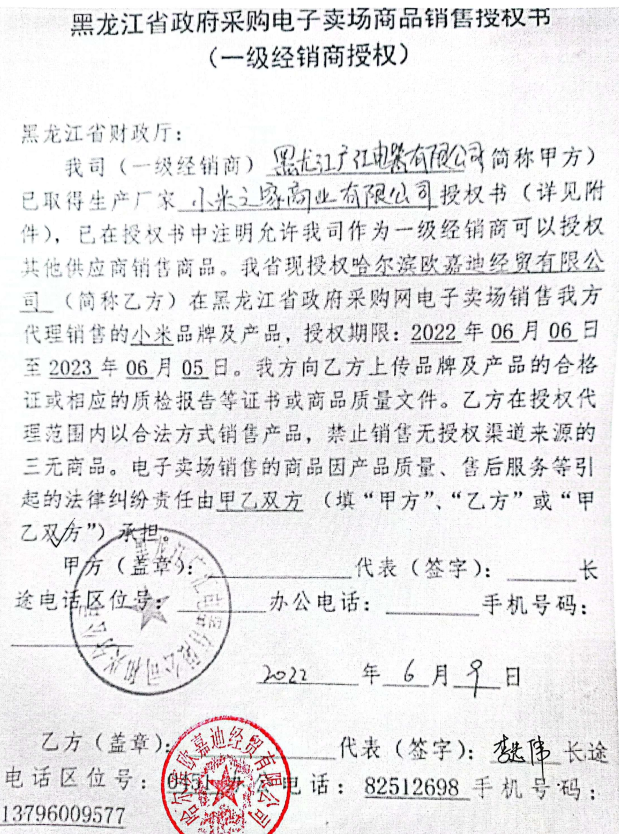 黑龙江省政府采购电子卖场商品销售授权书
（一级经销商授权）
黑龙江省财政厅：
我司（一级经销商）黑龙江广江电器有限公司简称甲方）
已取得生产厂家 小米之家商业有限公司 授权书（详见附
件），已在授权书中注明允许我司作为一级经销商可以授权
其他供应商销售商品。我省现授权哈尔滨欧嘉迪经贸有限公
司 （简称乙方）在黑龙江省政府采购网电子卖场销售我方
代理销售的小米品牌及产品，授权期限：2022 年 06 月 06 日
至 2023 年 06 月 05 日。我方向乙方上传品牌及产品的合格
证或相应的质检报告等证书或商品质量文件。乙方在授权代
理范围内以合法方式销售产品，禁止销售无授权渠道来源的
三无商品。电子卖场销售的商品因产品质量、售后服务等引
起的法律纠纷责任由甲乙双方 （填“甲方”、“乙方”或“甲
乙双方”）承担。
甲方（盖章）： 代表（签字）： 长
途电话区位号： 办公电话： 手机号码：
2022 年 6 月 9 日
乙方（盖章）： 代表（签字）： 长途
电话区位号：0451 办公电话：82512698 手机号码：
13796009577
哈尔滨欧嘉迪经贸有限公司